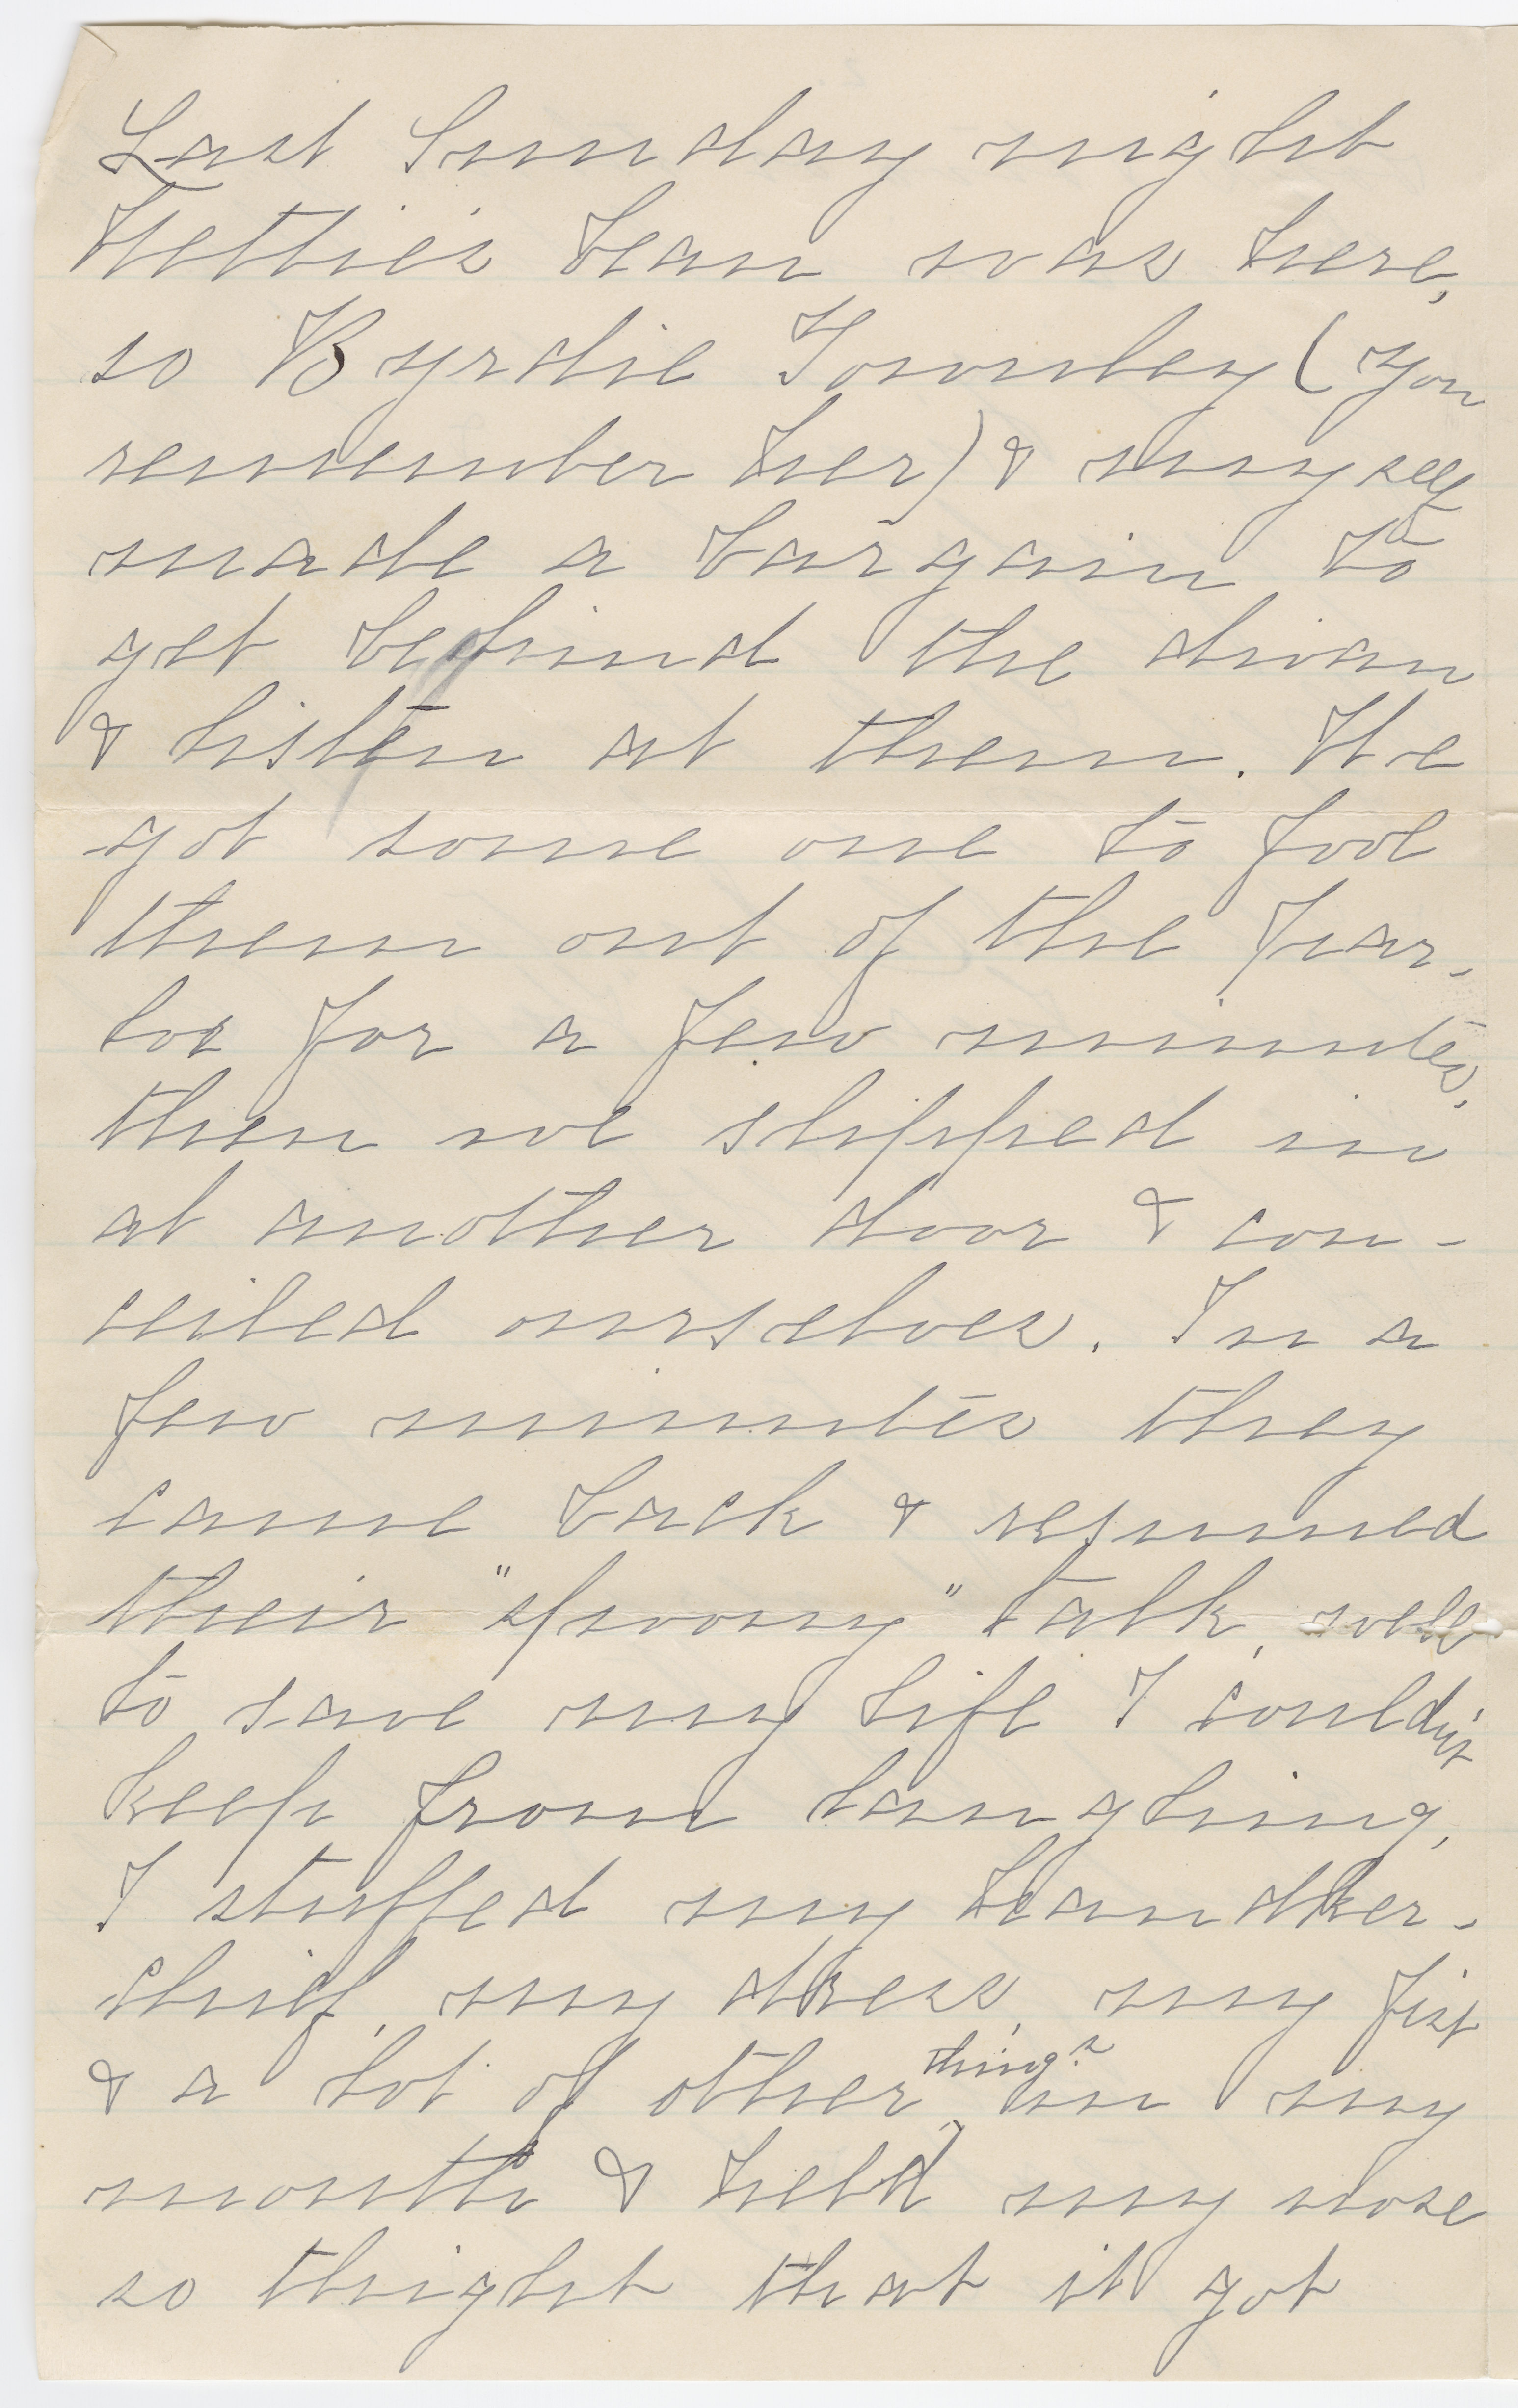 Last Sunday night
Hettie's beau was here,
so Byrdie Townley (you
remember her) & myself
made a bargain to
get behind the divan
& listen at them. We
got some one to fool
them out of the par-
lor for a few minutes,
then we slipped in
at another door & con-
ceiled ourselves. In a
few minutes they
came back & resumed
their "spoony" talk, well
to save my life I couldn't
keep from laughing,
I stuffed my handker-
chief, my dress, my fist
& a lot of other things in my
mouth & held my nose
so thight that it got